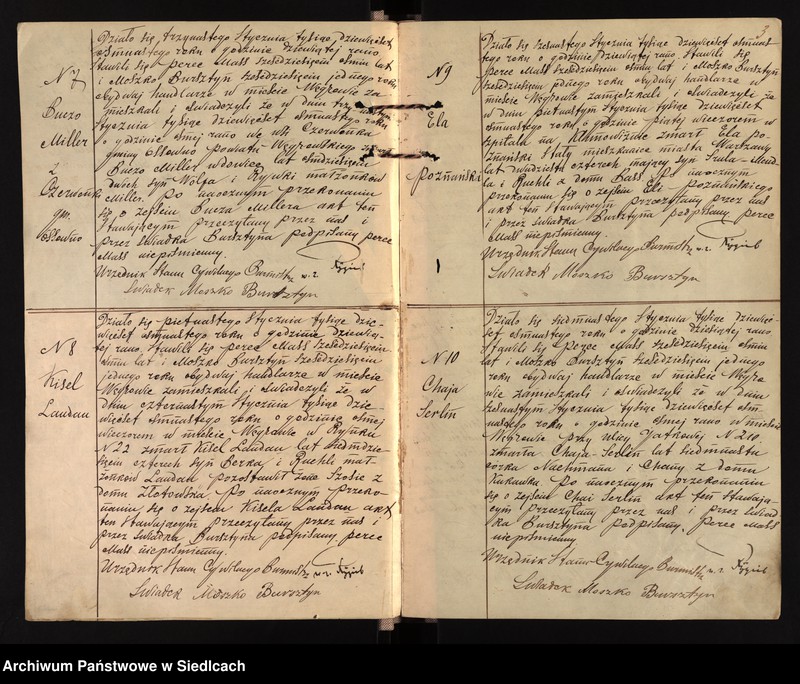 N 7
Buczo
Miller
z
Czerwonki
gm.
Ossówno
Działo się trzynastego Stycznia tysiąc dziewięćset
osmnastego roku o godzinie dziewiątej rano
Stawili się perec Mass sześćdziesięciu ośmiu lat
i Moszko Bursztyn sześćdziesięciu jednego roku
obydwaj handlarze w mieście Węgrowie za
mieszkali i świadczyli że w dniu
Stycznia tysiąc dziewięćset osmnastego roku
o godzinie ósmej rano we wsi Czerwonka
gminy Ossówno powiatu Węgrowskiego zmarł
Buczo Miller wdowiec lat
dwóch syn Wolfa i małżonków
Miller. Po naocznym przekonaniu
się o zejściu Bucza Millera akt ten
Stawającym przeczytany przez nas i
przez świadka Bursztyna podpisany perec
Mass niepiśmienny.
Urzędnik Stanu Cywilnego Burmistrz w. z.
Świadek Moszko Bursztyn
N 8
Kisel
Landau
Działo się piętnastego Stycznia tysiąc dzie-
więćset osmnastego roku o godzinie dziewią-
tej rano. Stawili się perec Mass sześćdziesięciu
ośmiu lat i Moszko Bursztyn sześćdziesięciu
jednego roku obydwaj handlarze w mieście
Węgrowie zamieszkali i świadczyli że w
dniu czternastym Stycznia tysiąc dzie-
więćset osmnastego roku o godzinie ósmej
wieczorem w mieście Węgrowie w Rynku
N 22 zmarł Kisel Landau lat siedmdzie-
sięciu czterech syn Berka i Ruchli mał-
żonków Landau pozostawił żonę Szosię z
domu Złotowska Po naocznym przeko-
naniu się o zejściu Kisela Landau akt
ten Stawającym przeczytany przez nas i
przez świadka Bursztyna podpisany perec
Mass niepiśmienny.
Urzędnik Stanu Cywilnego Burmistrz w. z.
Świadek Moszko Bursztyn
3
N 9
Ela
Poznański
Działo się szesnastego Stycznia tysiąc dziewięćset osmnas-
tego roku o godzinie dziewiątej rano. Stawili się
perec Mass sześćdziesięciu ośmiu lat i Moszko Bursztyn
sześćdziesięciu jednego roku obydwaj handlarze w
mieście Węgrowie zamieszkali i świadczyli że
w dniu piętnastym Stycznia tysiąc dziewięćset
osmnastego roku o godzinie piątej wieczorem w
szpitalu na Klimowiźnie zmarł Ela Po-
znański Stały mieszkaniec miasta Warszawy
lat dwudziestu czterech mający syn Szula-
la i Ruchli z domu Bass. Po naocznym
przekonaniu się o zejściu Eli Poznańskiego
akt ten Stawającym przeczytany przez nas
i przez świadka Bursztyna podpisany perec
Mass niepiśmienny.
Urzędnik Stanu Cywilnego Burmistrz w. z.
Świadek Moszko Bursztyn
N 10
Chaja
Serlin
Działo się siedmnastego Stycznia tysiąc dziewięć-
set osmnastego roku o godzinie dziesiątej rano
Stawili się Perec Mass sześćdziesięciu ośmiu
lat i Moszko Bursztyn sześćdziesięciu jednego
roku obydwaj handlarze w mieście Węgro
wie zamieszkali i świadczyli że w dniu
szesnastym Stycznia tysiąc dziewięćset osm
nastego roku o godzinie ósmej rano w mieście
Węgrowie przy ulicy Jatkowej N 210.
zmarła Chaja Serlin lat siedmnastu
córka Nachmana i Chany z domu
Kukawka. Po naocznym przekonaniu
się o zejściu Chai Serlin akt ten Stawają-
cym przeczytany przez nas i przez świad
ka Bursztyna podpisany. Perec Mass
niepiśmienny.
Urzędnik Stanu Cywilnego Burmistrz w. z.
Świadek Moszko Bursztyn
Archiwum Państwowe w Siedlcach